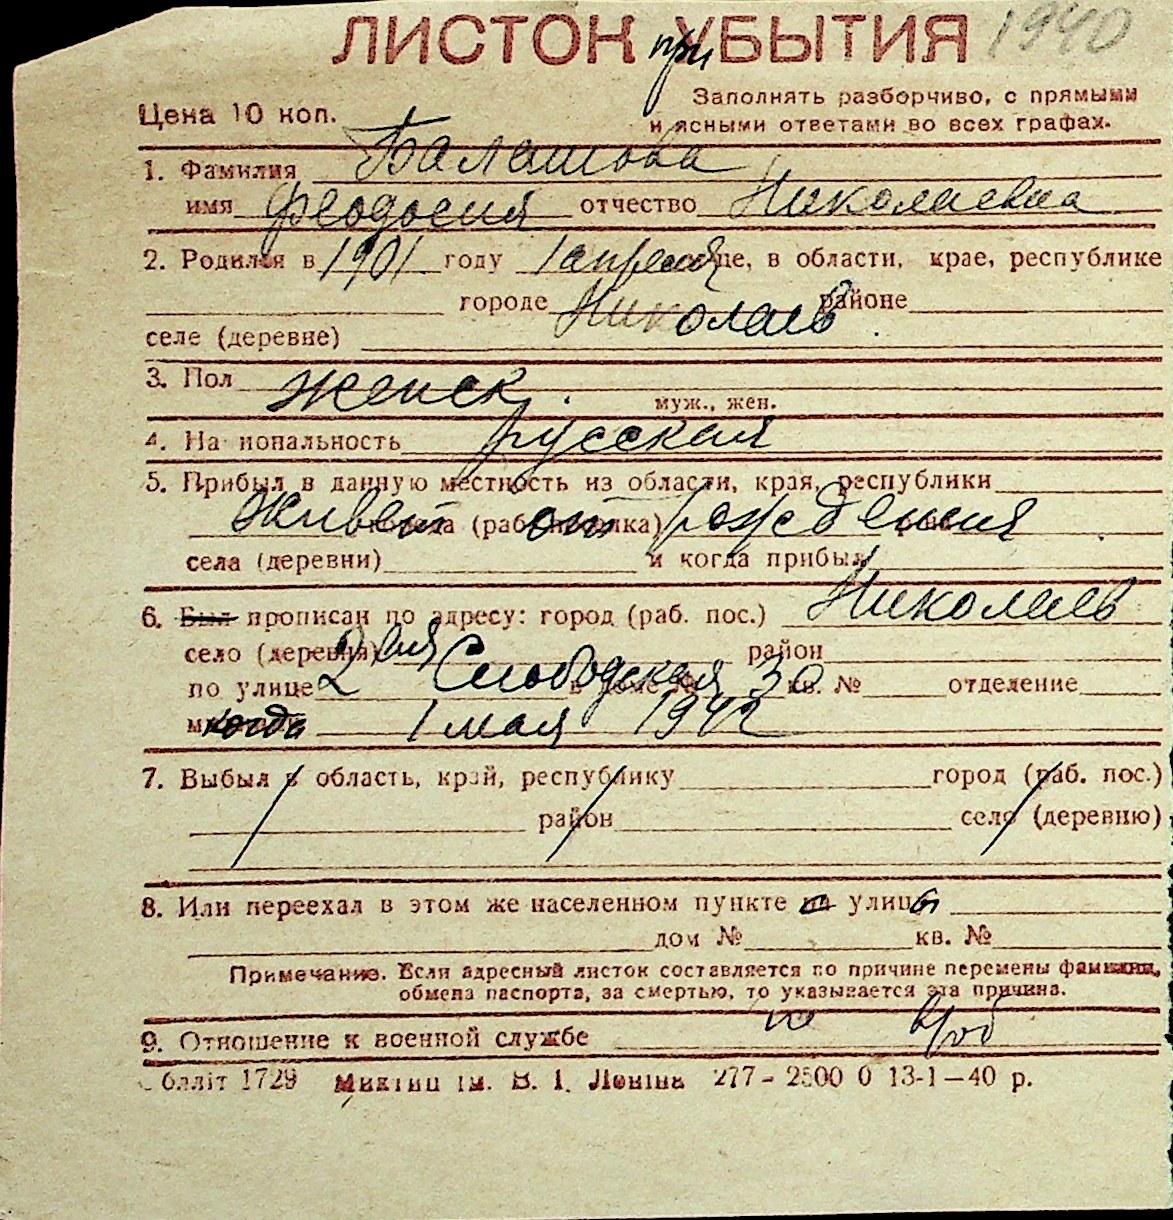 ЛИСТОК при УБЫТИЯ 1940
Цена 10 коп.
Заполнять разборчиво, с прямыми
и ясными ответами во всех графах.
1. Фамилия Балашова
имя Феодосия отчество Николаевна
2. Родился в 1901 году 1 апреля це, в области, крае, республике
городе Николаев районе
селе (деревне)
3. Пол женск. муж., жен.
4. Национальность русская
5. Прибыл в данную местность из области, края, республики
живет от рождения
села (деревни) и когда прибыл
6. Был прописан по адресу: город (раб. пос.) Николаев
село (деревня) район
по улице 2 ая Слободская в доме № 30 кв. № отделение
когда 1 мая 1942
7. Выбыл в область, край, республику город (раб. пос.)
район село (деревню)
8. Или переехал в этом же населенном пункте на улицы
дом № кв. №
Примечание. Если адресный листок составляется по причине перемены фамилии,
обмена паспорта, за смертью, то указывается эта причина.
9. Отношение к военной службе
блліт 1729 ім. В. І. Леніна 277 - 2500 0 13-1-40 р.